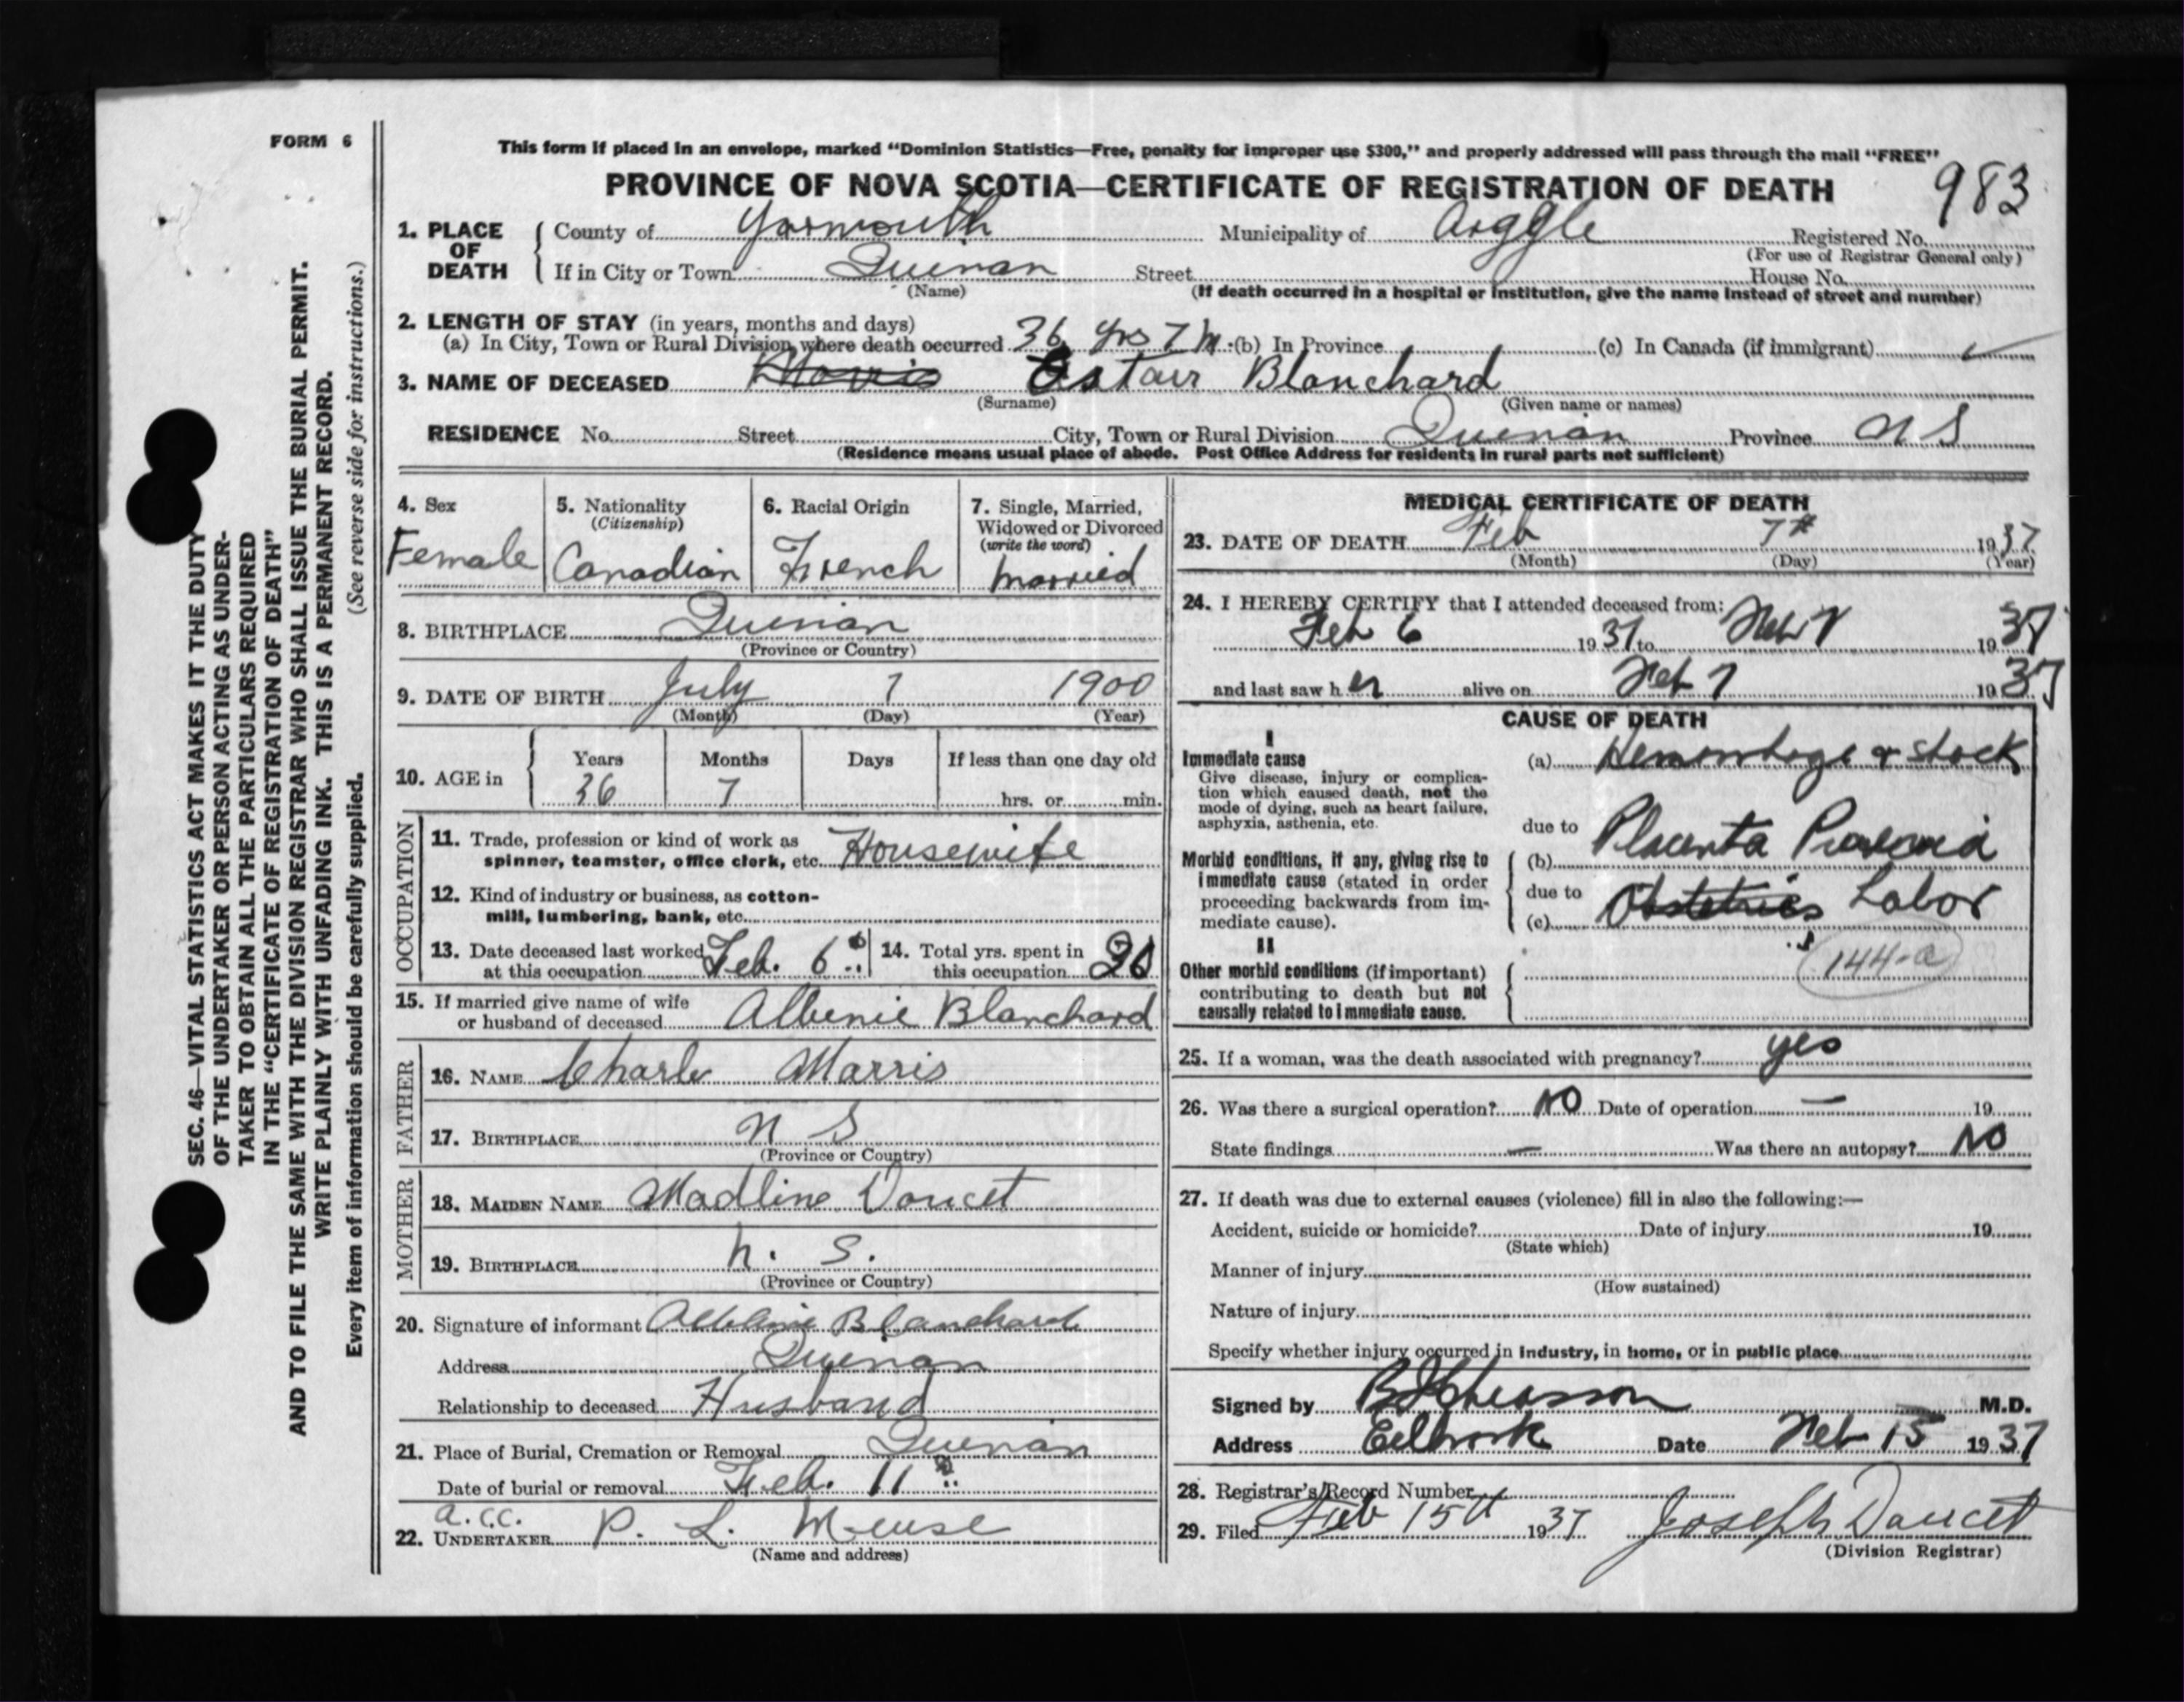 FORM 6
SEC. 46—VITAL STATISTICS ACT MAKES IT THE DUTY
OF THE UNDERTAKER OR PERSON ACTING AS UNDER-
TAKER TO OBTAIN ALL THE PARTICULARS REQUIRED
IN THE "CERTIFICATE OF REGISTRATION OF DEATH"
AND TO FILE THE SAME WITH THE DIVISION REGISTRAR WHO SHALL ISSUE THE BURIAL PERMIT.
WRITE PLAINLY WITH UNFADING INK. THIS IS A PERMANENT RECORD.
Every item of information should be carefully supplied. (See reverse side for instructions.)
This form if placed in an envelope, marked "Dominion Statistics—Free, penalty for improper use $300," and properly addressed will pass through the mail "FREE"
PROVINCE OF NOVA SCOTIA—CERTIFICATE OF REGISTRATION OF DEATH 983
1. PLACE OF DEATH County of Yarmouth Municipality of Argyle Registered No.
(For use of Registrar General only)
If in City or Town Quinan Street House No.
(Name) (If death occurred in a hospital or institution, give the name instead of street and number)
2. LENGTH OF STAY (in years, months and days)
(a) In City, Town or Rural Division where death occurred 36 yrs 7 M (b) In Province (c) In Canada (if immigrant)
3. NAME OF DECEASED Blanchard
(Surname) (Given name or names)
RESIDENCE No. Street City, Town or Rural Division Quinan Province N S
(Residence means usual place of abode. Post Office Address for residents in rural parts not sufficient)
4. Sex 5. Nationality (Citizenship) 6. Racial Origin 7. Single, Married, Widowed or Divorced (write the word)
Female Canadian French Married
8. BIRTHPLACE Quinan
(Province or Country)
9. DATE OF BIRTH July 7 1900
(Month) (Day) (Year)
10. AGE in Years Months Days If less than one day old
36 7 hrs. or min.
OCCUPATION
11. Trade, profession or kind of work as
spinner, teamster, office clerk, etc. Housewife
12. Kind of industry or business, as cotton-
mill, lumbering, bank, etc.
13. Date deceased last worked at this occupation Feb. 6 14. Total yrs. spent in this occupation
15. If married give name of wife
or husband of deceased Albenie Blanchard
FATHER
16. NAME Charle Marris
17. BIRTHPLACE N S
(Province or Country)
MOTHER
18. MAIDEN NAME Madline Doucet
19. BIRTHPLACE N. S.
(Province or Country)
20. Signature of informant Blanchard
Address Quinan
Relationship to deceased Husband
21. Place of Burial, Cremation or Removal Quinan
Date of burial or removal Feb. 11
a.c.c.
22. UNDERTAKER P. L. Meuse
(Name and address)
MEDICAL CERTIFICATE OF DEATH
23. DATE OF DEATH Feb 7th 1937
(Month) (Day) (Year)
24. I HEREBY CERTIFY that I attended deceased from:
Feb 6 1937 to Feb 7 1937
and last saw her alive on Feb 7 1937
CAUSE OF DEATH
I
Immediate cause
Give disease, injury or complica-
tion which caused death, not the
mode of dying, such as heart failure,
asphyxia, asthenia, etc.
(a) Hemorrhage & shock
due to
Morbid conditions, if any, giving rise to
immediate cause (stated in order
proceeding backwards from im-
mediate cause).
(b) Placenta Praevia
due to
(c) Obstetrics Labor
II
Other morbid conditions (if important)
contributing to death but not
causally related to immediate cause.
144-a
25. If a woman, was the death associated with pregnancy? yes
26. Was there a surgical operation? NO Date of operation — 19
State findings — Was there an autopsy? NO
27. If death was due to external causes (violence) fill in also the following:—
Accident, suicide or homicide? Date of injury 19
(State which)
Manner of injury
(How sustained)
Nature of injury
Specify whether injury occurred in industry, in home, or in public place
Signed by M.D.
Address Date Feb 15 1937
28. Registrar's Record Number
29. Filed Feb 15th 1937 Joseph Doucet
(Division Registrar)